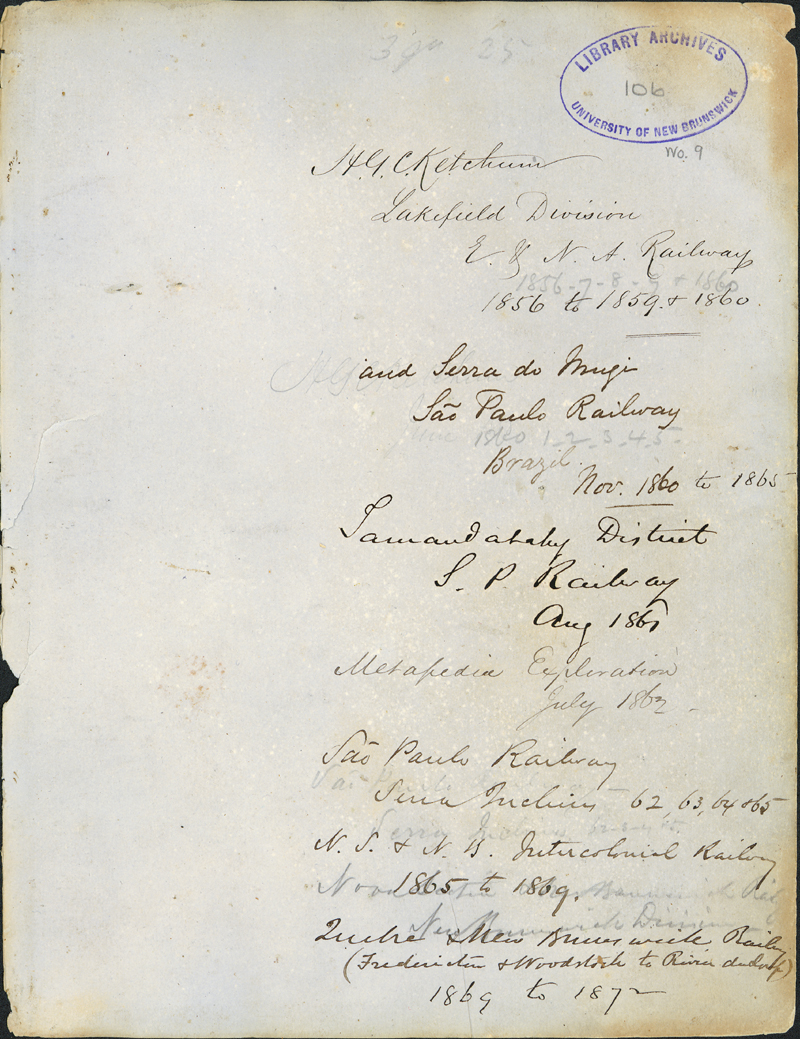 LIBRARY ARCHIVES
106
UNIVERSITY OF NEW BRUNSWICK
No. 9
H.G.C. Ketchum
Lakefield Division
E. & N. A. Railway
1856-7-8-9 + 1860
1856 to 1859 & 1860.
and Serra do Mugi
São Paulo Railway
1860 1-2-3-4-5-
Brazil.
Nov. 1860 to 1865
Tamandatahy District
S. P. Railway
Aug 1861
Metapedia Exploration
July 1862
São Paulo Railway
Serra Inclines 62, 63, 64 & 65
N. S. & N. B. Intercolonial Railway
1865 to 1869.
New Brunswick Division
Quebec & New Brunswick Railway
(Fredericton & Woodstock to River du Loup)
1869 to 1872